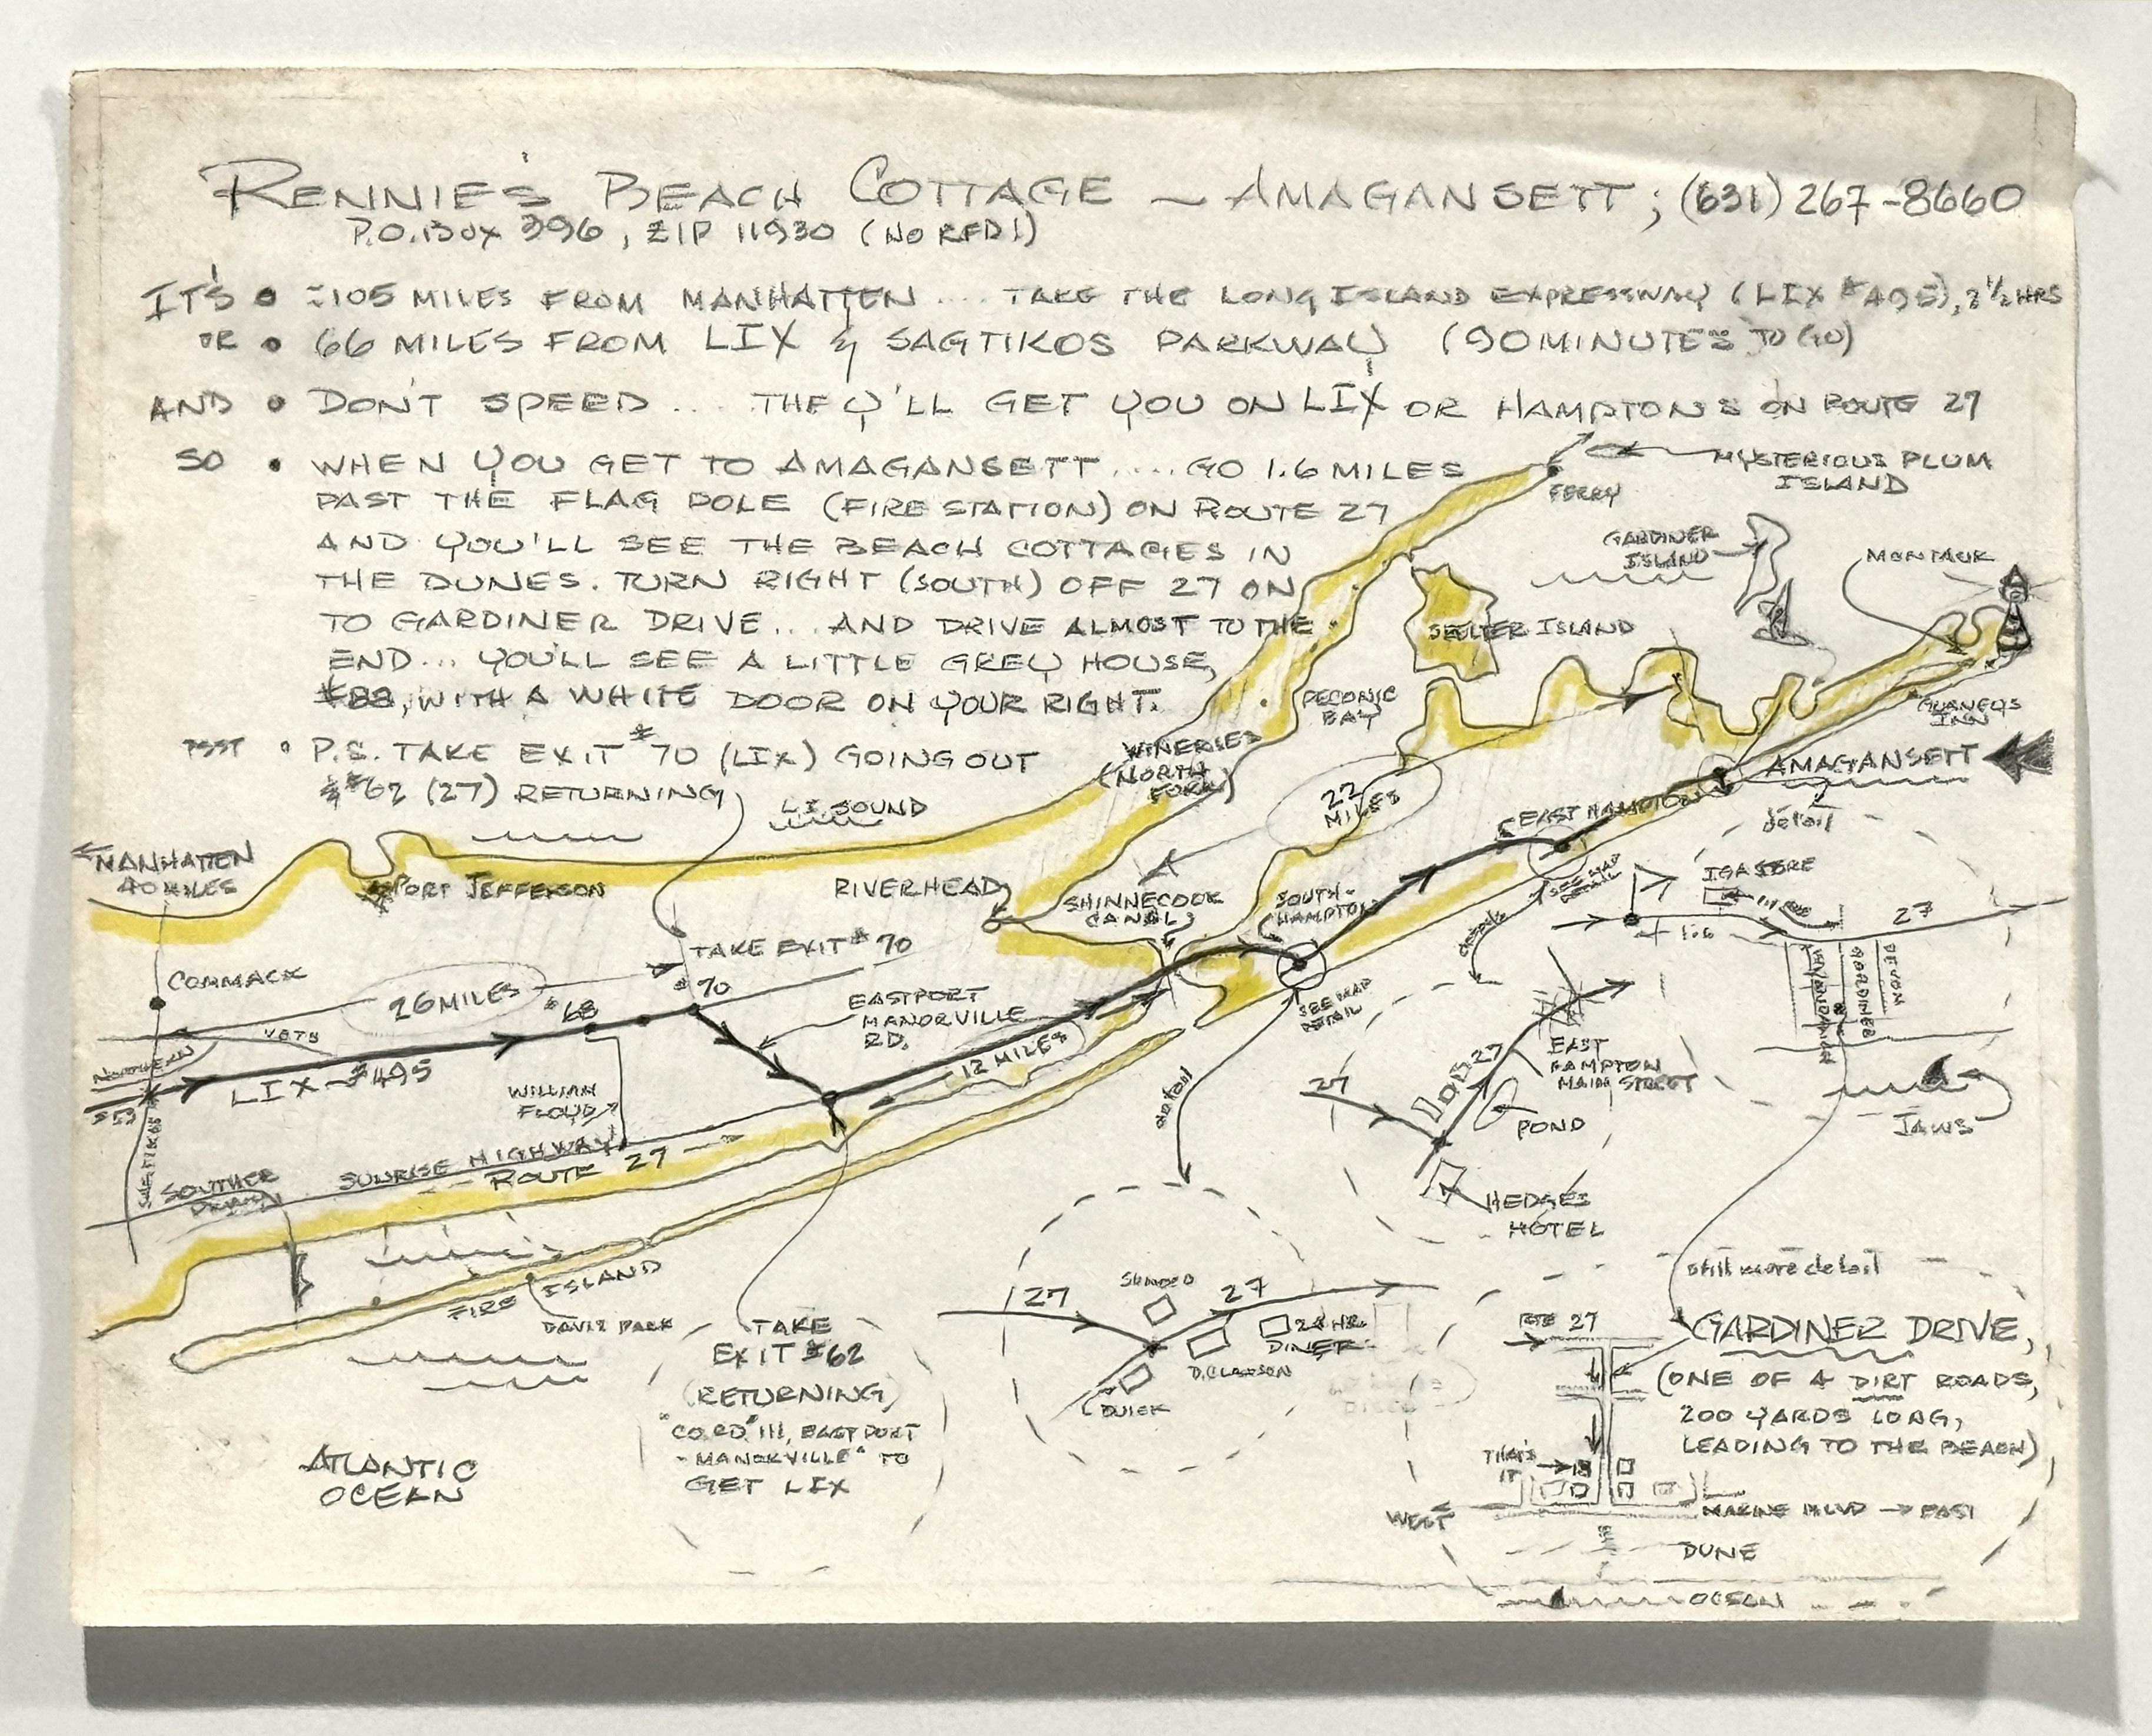 RENNIE'S BEACH COTTAGE ~ AMAGANSETT; (631) 267-8660
P.O. BOX 396, ZIP 11930 (NO RFD!)
IT'S • ≈105 MILES FROM MANHATTEN .... TAKE THE LONG ISLAND EXPRESSWAY (LIX #495), 2 1/2 HRS
OR • 66 MILES FROM LIX & SAGTIKOS PARKWAY (90 MINUTES TO GO)
AND • DON'T SPEED .... THEY'LL GET YOU ON LIX OR HAMPTONS ON ROUTE 27
SO • WHEN YOU GET TO AMAGANSETT..... GO 1.6 MILES
PAST THE FLAG POLE (FIRE STATION) ON ROUTE 27
AND YOU'LL SEE THE BEACH COTTAGES IN
THE DUNES. TURN RIGHT (SOUTH) OFF 27 ON
TO GARDINER DRIVE... AND DRIVE ALMOST TO THE
END... YOU'LL SEE A LITTLE GREY HOUSE,
#88, WITH A WHITE DOOR ON YOUR RIGHT.
PSST • P.S. TAKE EXIT #70 (LIX) GOING OUT
& #62 (27) RETURNING
MYSTERIOUS PLUM
ISLAND
FERRY
GARDINER
ISLAND
MONTAUK
SHELTER ISLAND
PECONIC
BAY
GURNEYS
INN
WINERIES
(NORTH
FORK)
AMAGANSETT
detail
LI SOUND
22
MILES
EAST HAMPTON
SEE MAP
DETAIL
MANHATTEN
40 MILES
PORT JEFFERSON
RIVERHEAD
SHINNECOCK
CANAL
SOUTH-
HAMPTON
SEE MAP
DETAIL
detail
IGA STORE
27
+ 1.6
GARDINER
DEVON
COMMACK
26 MILES
TAKE EXIT #70
#70
#68
VETS
NORTHERN
EASTPORT
MANORVILLE
RD.
12 MILES
LIX - #495
#53
SAGTIKOS
WILLIAM
FLOYD
SUNRISE HIGHWAY
ROUTE 27
FIRE ISLAND
DAVIS PARK
ATLANTIC
OCEAN
27
27
EAST
HAMPTON
MAIN STREET
POND
HEDGES
HOTEL
JAWS
detail
TAKE
EXIT #62
(RETURNING)
"CO. RD" 111, EASTPORT
- MANORVILLE" TO
GET LIX
27
27
24 HR.
DINER
BUICK
still more detail
RTE 27
GARDINER DRIVE,
(ONE OF 4 DIRT ROADS,
200 YARDS LONG,
LEADING TO THE BEACH)
THAT'S
IT
WEST
MARINE BLVD → EAST
DUNE
OCEAN